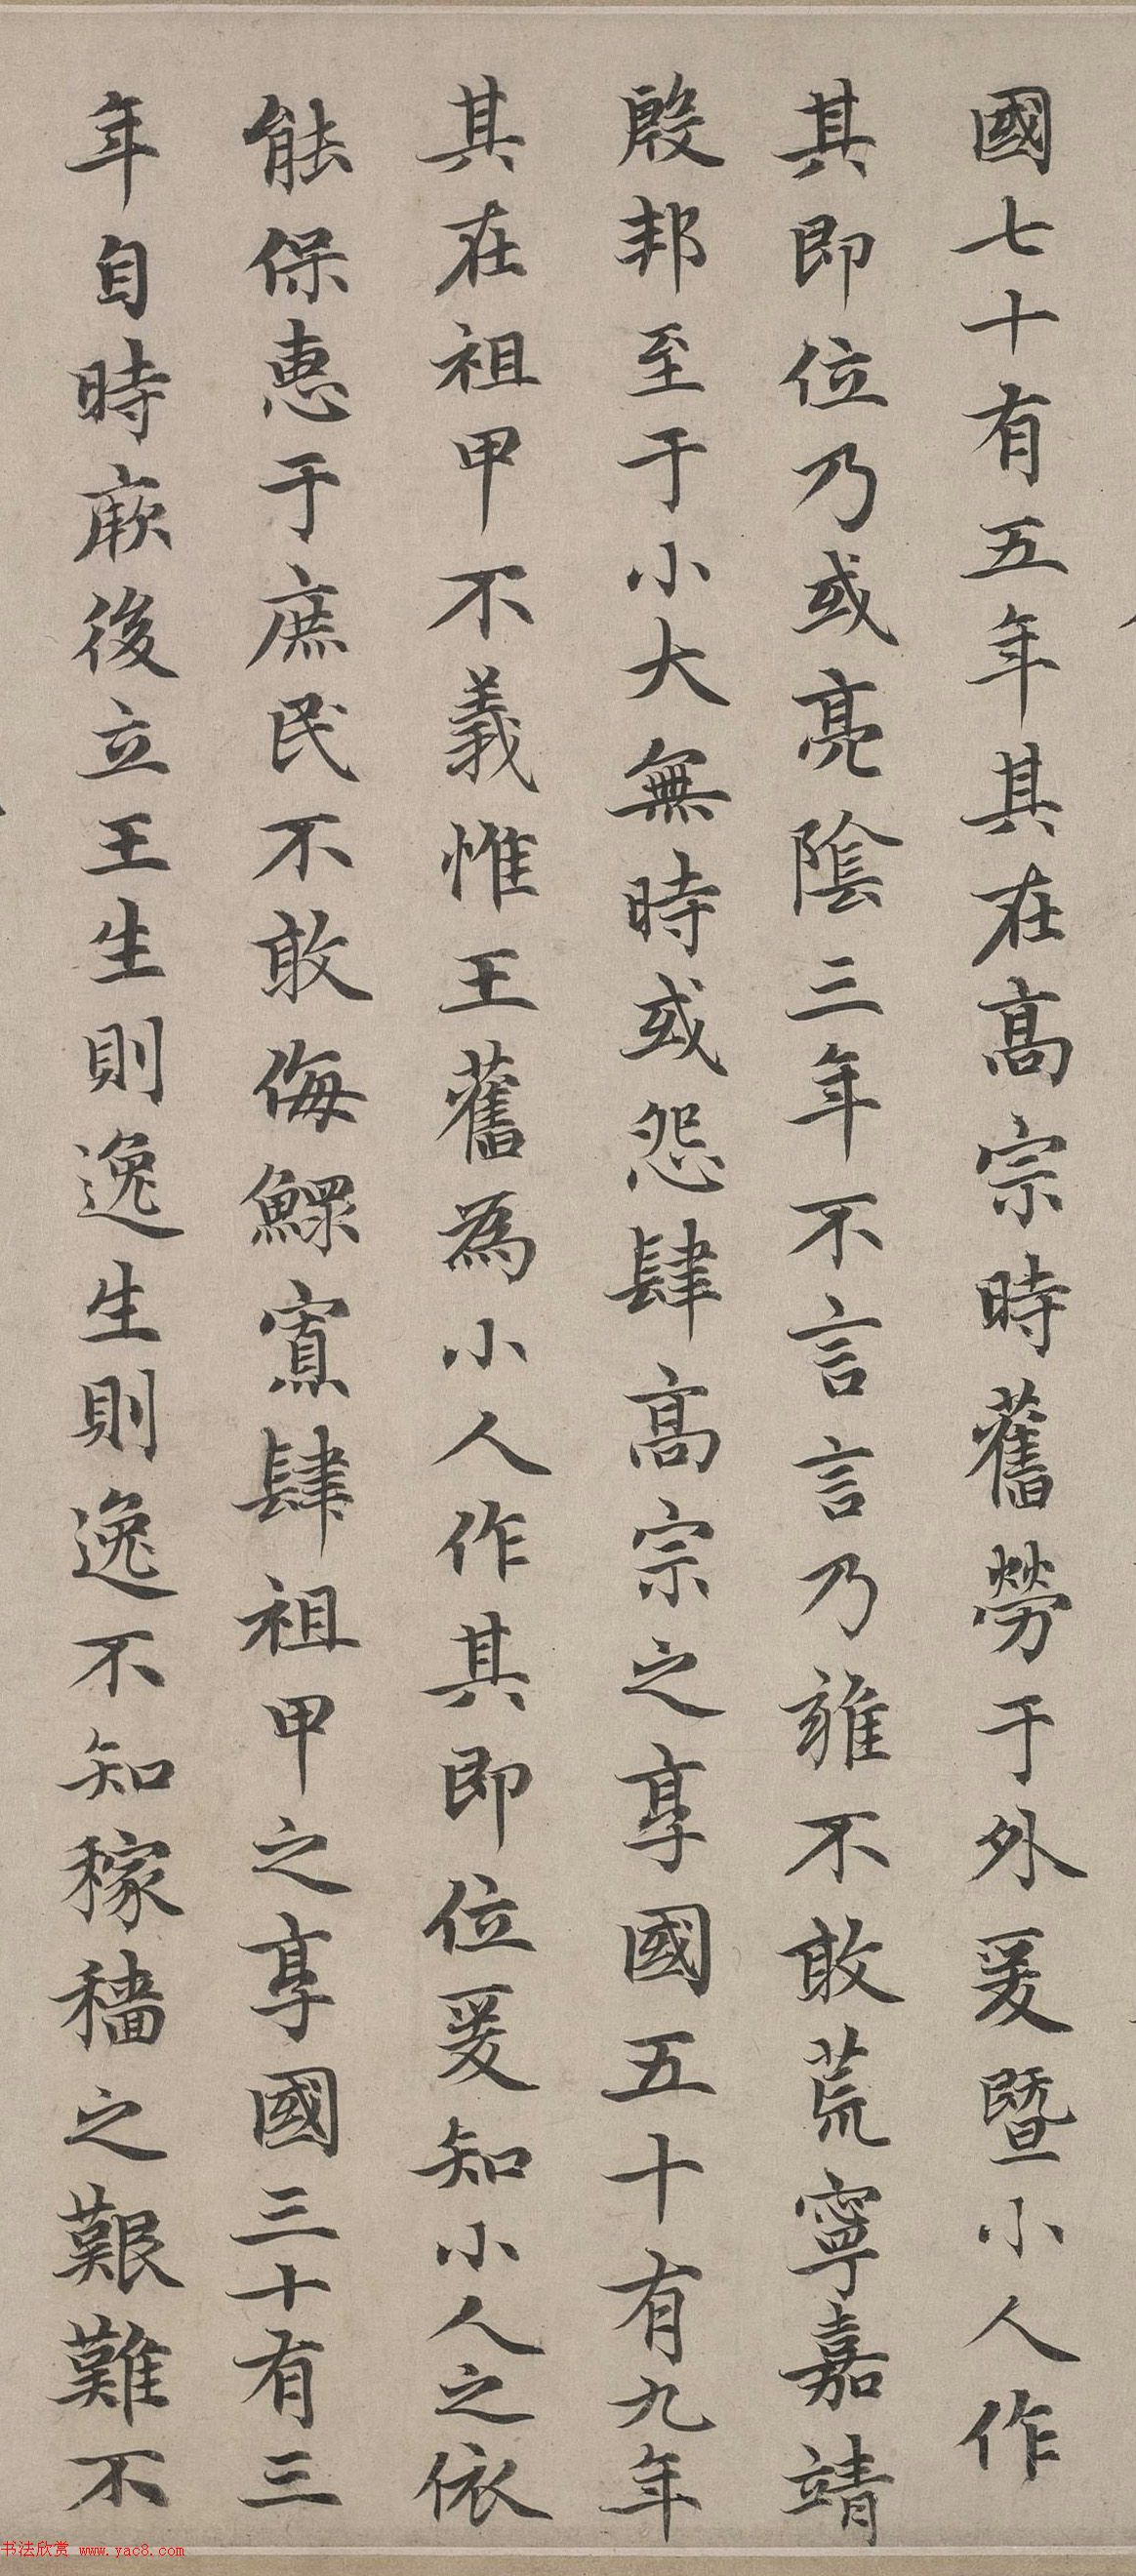 國七十有五年其在高宗時舊勞于外爰暨小人作
其即位乃或亮陰三年不言言乃雍不敢荒寧嘉靖
殷邦至于小大無時或怨肆高宗之享國五十有九年
其在祖甲不義惟王舊為小人作其即位爰知小人之依
能保惠于庶民不敢侮鰥寡肆祖甲之享國三十有三
年自時厥後立王生則逸生則逸不知稼穡之艱難不
书法欣赏 www.yac8.com